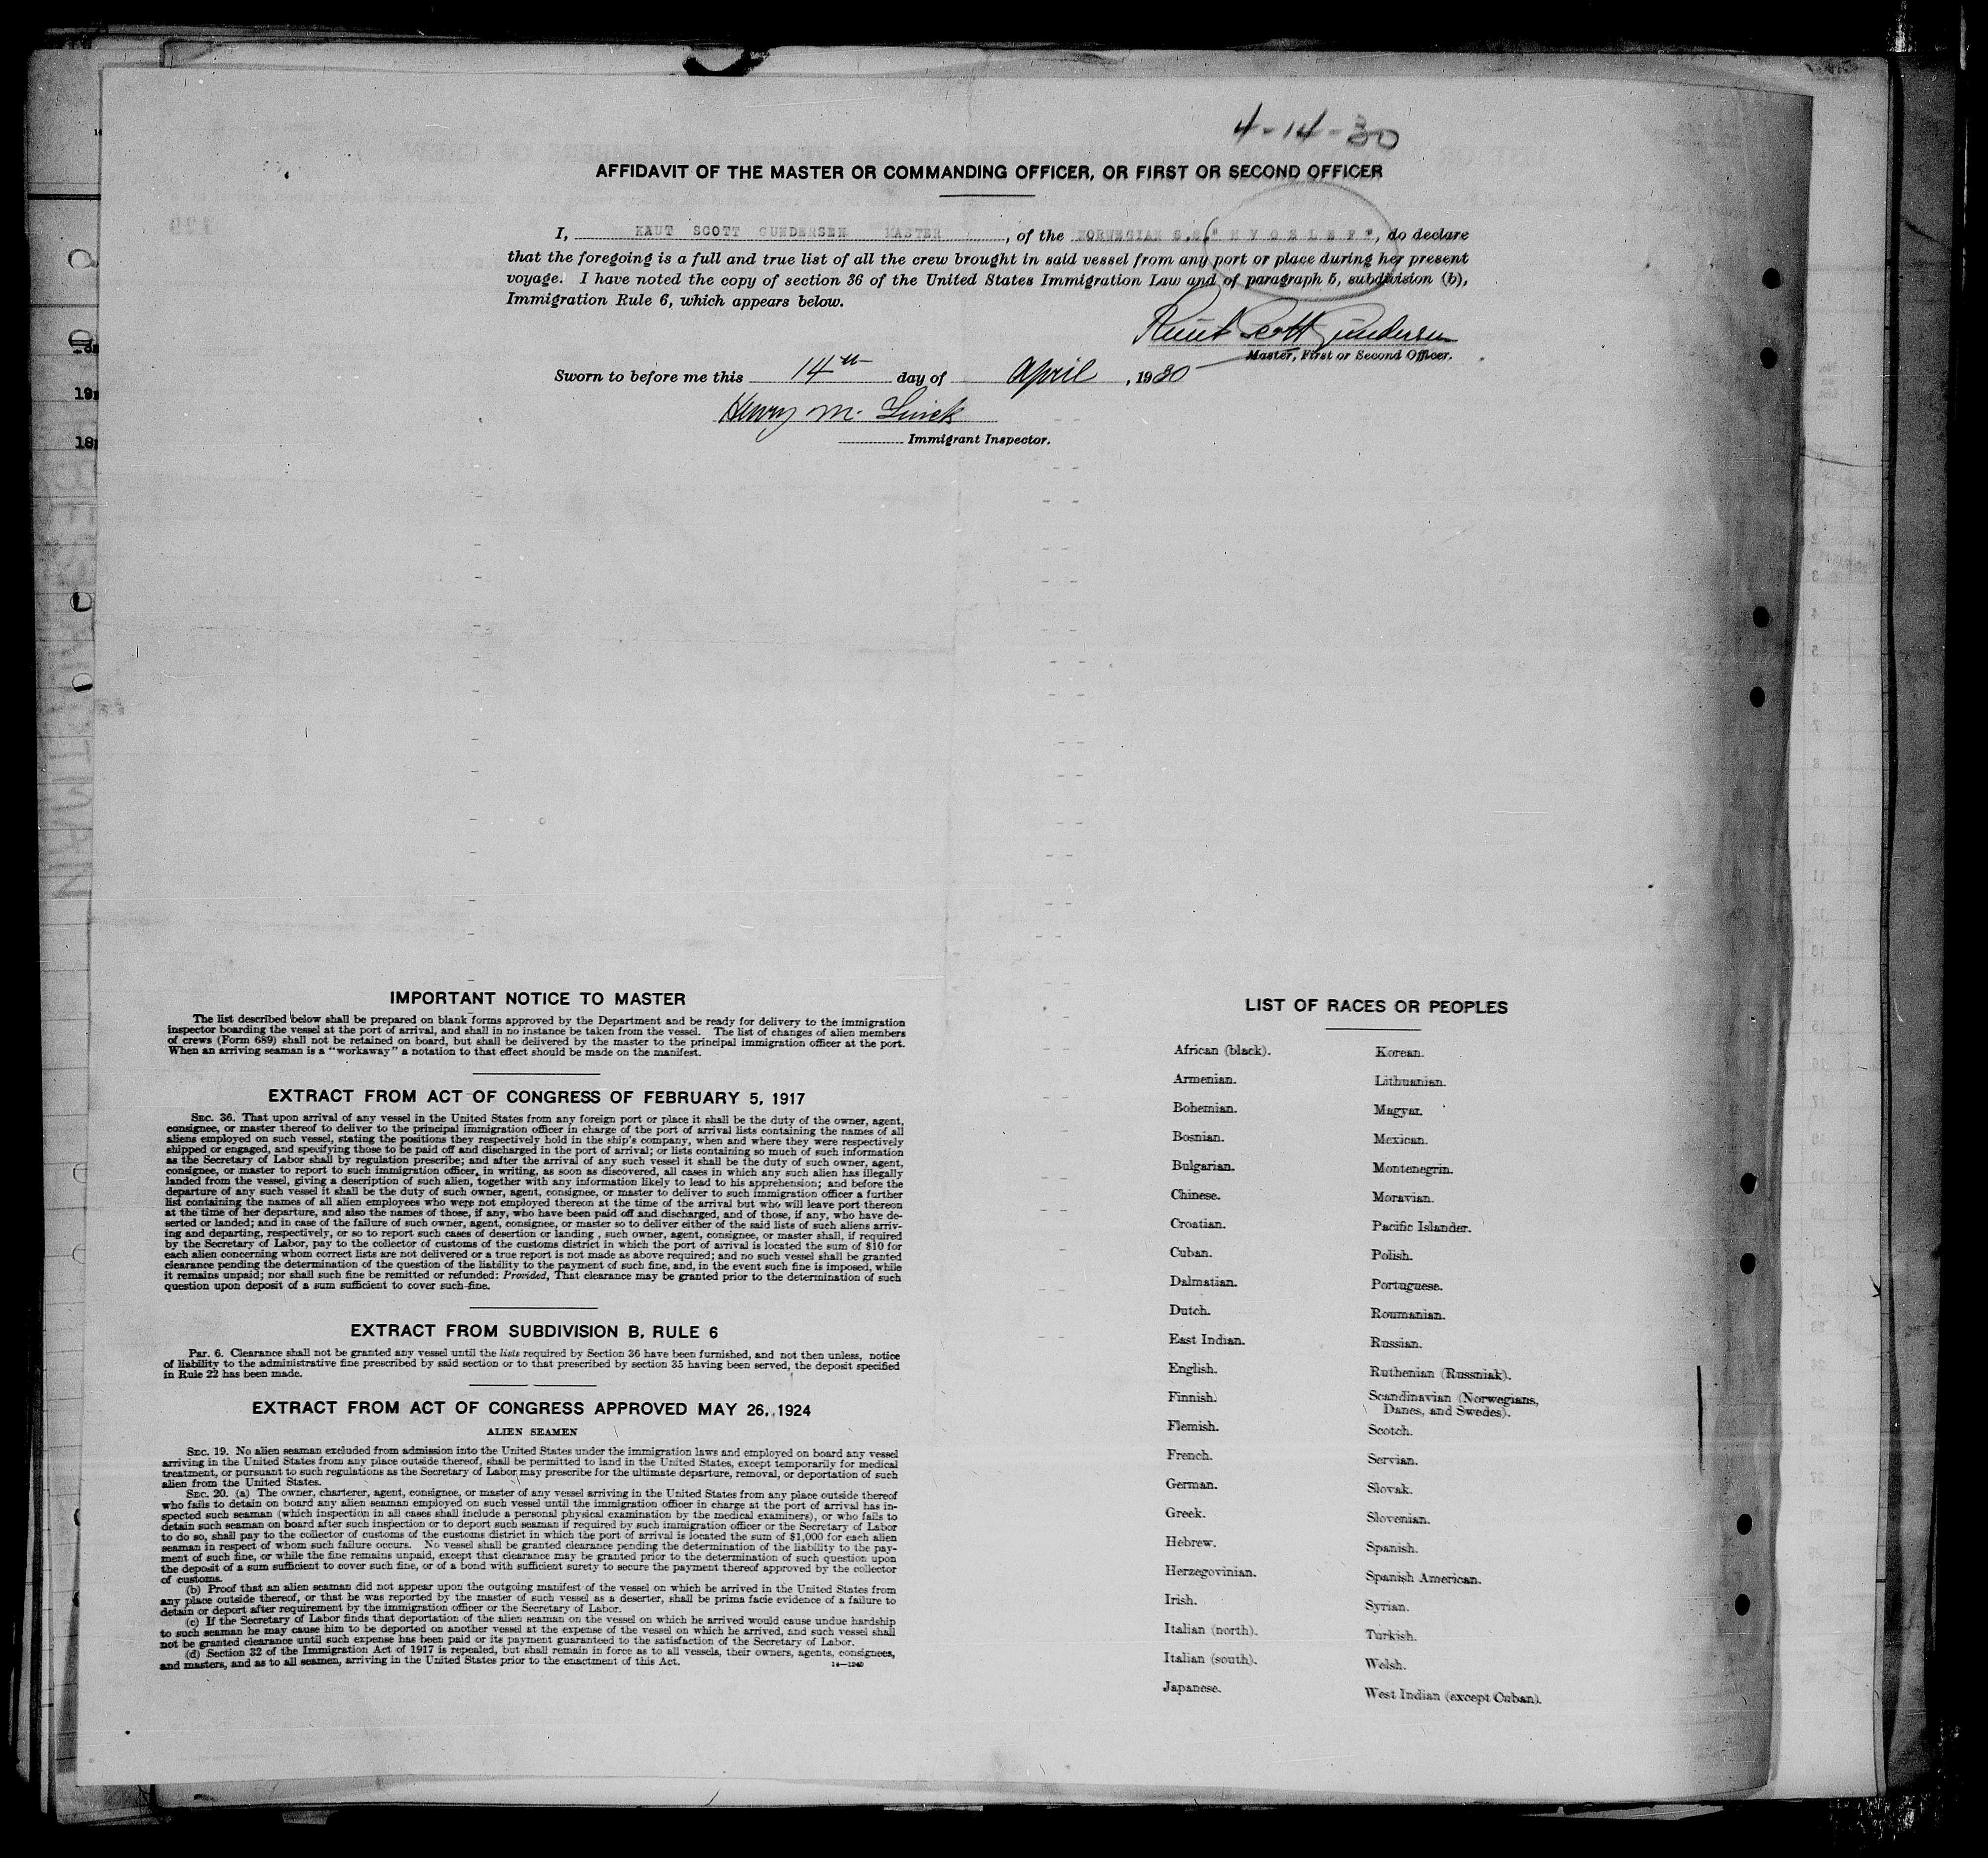 4-14-30
AFFIDAVIT OF THE MASTER OR COMMANDING OFFICER, OR FIRST OR SECOND OFFICER
I, KAUT SCOTT GUNDERSEN MASTER, of the NORWEGIAN S.S. "HVOSLEF", do declare
that the foregoing is a full and true list of all the crew brought in said vessel from any port or place during her present
voyage. I have noted the copy of section 36 of the United States Immigration Law and of paragraph 5, subdivision (b),
Immigration Rule 6, which appears below.
Knut Scott Gundersen
Master, First or Second Officer.
Sworn to before me this 14th day of April, 1930
Henry M.
Immigrant Inspector.
19
18
IMPORTANT NOTICE TO MASTER
The list described below shall be prepared on blank forms approved by the Department and be ready for delivery to the immigration
inspector boarding the vessel at the port of arrival, and shall in no instance be taken from the vessel. The list of changes of alien members
of crews (Form 689) shall not be retained on board, but shall be delivered by the master to the principal immigration officer at the port.
When an arriving seaman is a "workaway" a notation to that effect should be made on the manifest.
EXTRACT FROM ACT OF CONGRESS OF FEBRUARY 5, 1917
SEC. 36. That upon arrival of any vessel in the United States from any foreign port or place it shall be the duty of the owner, agent,
consignee, or master thereof to deliver to the principal immigration officer in charge of the port of arrival lists containing the names of all
aliens employed on such vessel, stating the positions they respectively hold in the ship's company, when and where they were respectively
shipped or engaged, and specifying those to be paid off and discharged in the port of arrival; or lists containing so much of such information
as the Secretary of Labor shall by regulation prescribe; and after the arrival of any such vessel it shall be the duty of such owner, agent,
consignee, or master to report to such immigration officer, in writing, as soon as discovered, all cases in which any such alien has illegally
landed from the vessel, giving a description of such alien, together with any information likely to lead to his apprehension; and before the
departure of any such vessel it shall be the duty of such owner, agent, consignee, or master to deliver to such immigration officer a further
list containing the names of all alien employees who were not employed thereon at the time of the arrival but who will leave port thereon
at the time of her departure, and also the names of those, if any, who have been paid off and discharged, and of those, if any, who have de-
serted or landed; and in case of the failure of such owner, agent, consignee, or master so to deliver either of the said lists of such aliens arriv-
ing and departing, respectively, or so to report such cases of desertion or landing, such owner, agent, consignee, or master, shall, if required
by the Secretary of Labor, pay to the collector of customs of the customs district in which the port of arrival is located the sum of $10 for
each alien concerning whom correct lists are not delivered or a true report is not made as above required; and no such vessel shall be granted
clearance pending the determination of the question of the liability to the payment of such fine, and, in the event such fine is imposed, while
it remains unpaid; nor shall such fine be remitted or refunded: Provided, That clearance may be granted prior to the determination of such
question upon deposit of a sum sufficient to cover such fine.
EXTRACT FROM SUBDIVISION B, RULE 6
PAR. 6. Clearance shall not be granted any vessel until the lists required by Section 36 have been furnished, and not then unless, notice
of liability to the administrative fine prescribed by said section or to that prescribed by section 35 having been served, the deposit specified
in Rule 22 has been made.
EXTRACT FROM ACT OF CONGRESS APPROVED MAY 26, 1924
ALIEN SEAMEN
SEC. 19. No alien seaman excluded from admission into the United States under the immigration laws and employed on board any vessel
arriving in the United States from any place outside thereof, shall be permitted to land in the United States, except temporarily for medical
treatment, or pursuant to such regulations as the Secretary of Labor may prescribe for the ultimate departure, removal, or deportation of such
alien from the United States.
SEC. 20. (a) The owner, charterer, agent, consignee, or master of any vessel arriving in the United States from any place outside thereof
who fails to detain on board any alien seaman employed on such vessel until the immigration officer in charge at the port of arrival has in-
spected such seaman (which inspection in all cases shall include a personal physical examination by the medical examiners), or who fails to
detain such seaman on board after such inspection or to deport such seaman if required by such immigration officer or the Secretary of Labor
to do so, shall pay to the collector of customs of the customs district in which the port of arrival is located the sum of $1,000 for each alien
seaman in respect of whom such failure occurs. No vessel shall be granted clearance pending the determination of the liability to the pay-
ment of such fine, or while the fine remains unpaid, except that clearance may be granted prior to the determination of such question upon
the deposit of a sum sufficient to cover such fine, or of a bond with sufficient surety to secure the payment thereof approved by the collector
of customs.
(b) Proof that an alien seaman did not appear upon the outgoing manifest of the vessel on which he arrived in the United States from
any place outside thereof, or that he was reported by the master of such vessel as a deserter, shall be prima facie evidence of a failure to
detain or deport after requirement by the immigration officer or the Secretary of Labor.
(c) If the Secretary of Labor finds that deportation of the alien seaman on the vessel on which he arrived would cause undue hardship
to such seaman he may cause him to be deported on another vessel at the expense of the vessel on which he arrived, and such vessel shall
not be granted clearance until such expense has been paid or its payment guaranteed to the satisfaction of the Secretary of Labor.
(d) Section 32 of the Immigration Act of 1917 is repealed, but shall remain in force as to all vessels, their owners, agents, consignees,
and masters, and as to all seamen, arriving in the United States prior to the enactment of this Act.
14—1240
LIST OF RACES OR PEOPLES
African (black).
Armenian.
Bohemian.
Bosnian.
Bulgarian.
Chinese.
Croatian.
Cuban.
Dalmatian.
Dutch.
East Indian.
English.
Finnish.
Flemish.
French.
German.
Greek.
Hebrew.
Herzegovinian.
Irish.
Italian (north).
Italian (south).
Japanese.
Korean.
Lithuanian.
Magyar.
Mexican.
Montenegrin.
Moravian.
Pacific Islander.
Polish.
Portuguese.
Roumanian.
Russian.
Ruthenian (Russniak).
Scandinavian (Norwegians,
Danes, and Swedes).
Scotch.
Servian.
Slovak.
Slovenian.
Spanish.
Spanish American.
Syrian.
Turkish.
Welsh.
West Indian (except Cuban).